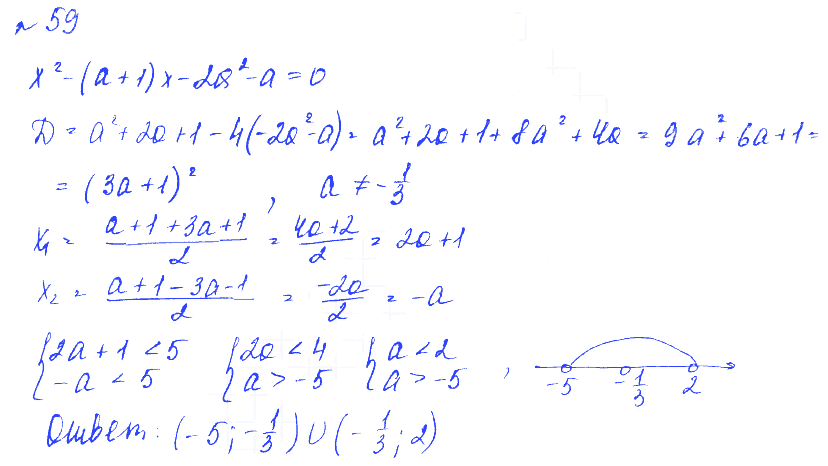 № 59
x² - (a + 1)x - 2a² - a = 0
D = a² + 2a + 1 - 4(-2a² - a) = a² + 2a + 1 + 8a² + 4a = 9a² + 6a + 1 =
= (3a + 1)², a ≠ -1/3
x₁ = (a + 1 + 3a + 1)/2 = (4a + 2)/2 = 2a + 1
x₂ = (a + 1 - 3a - 1)/2 = -2a/2 = -a
{2a + 1 < 5 {2a < 4 {a < 2
{-a < 5 {a > -5 {a > -5 , -5 -1/3 2
Ответ: (-5; -1/3) ∪ (-1/3; 2)